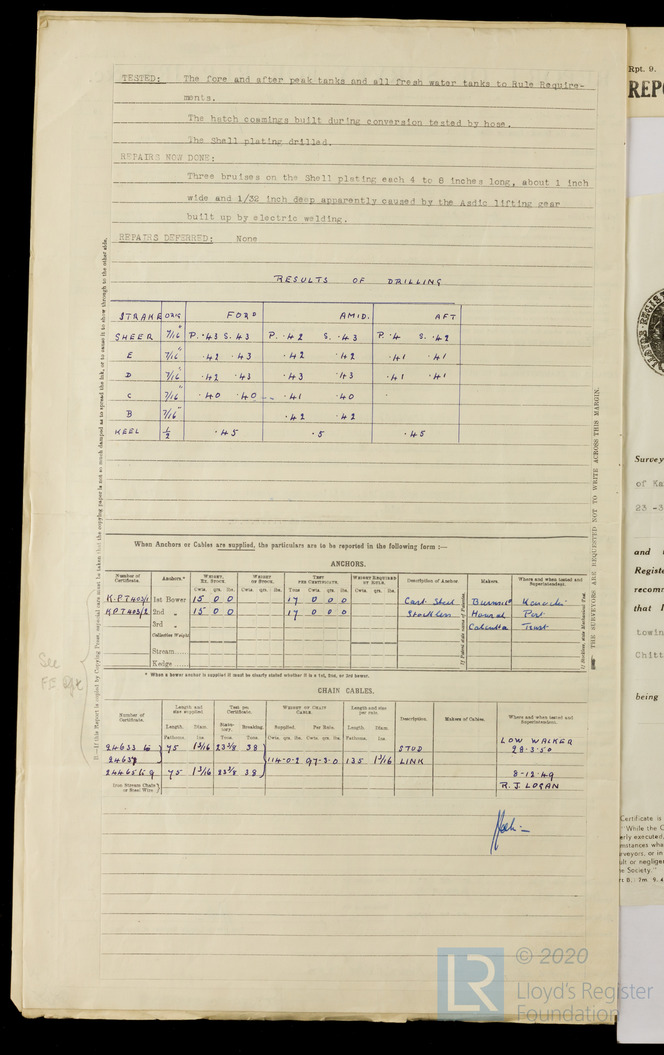 TESTED: The fore and after peak tanks and all fresh water tanks to Rule Require-
ments.
The hatch coamings built during conversion tested by hose.
The Shell plating drilled.
REPAIRS NOW DONE:
Three bruises on the Shell plating each 4 to 8 inches long, about 1 inch
wide and 1/32 inch deep apparently caused by the Asdic lifting gear
built up by electric welding.
REPAIRS DEFERRED: None
RESULTS OF DRILLING
STRAKE ORIG FORD AMID. AFT
SHEER 7/16" P. .43 S. 43 P. .42 S. .43 P. .4 S. .42
E 7/16" .42 .43 .42 .42 .41 .41
D 7/16" .42 .43 .43 .43 .41 .41
C 7/16" .40 .40 .41 .40
B 7/16" .42 .42
KEEL 1/2 .45 .5 .45
When Anchors or Cables are supplied, the particulars are to be reported in the following form :—
ANCHORS.
Number of Certificate. Anchors.* Weight, Ex. Stock. Weight of Stock. Test per Certificate. Weight Required by Rule. Description of Anchor Makers. Where and when tested and Superintendent.
Cwts. qrs. lbs. Cwts. qrs. lbs. Tons Cwts. qrs. lbs. Cwts. qrs. lbs.
1st Bower 15 0 0 17 0 0 0 Cast Steel Karachi
2nd „ 15 0 0 17 0 0 0 Stockless Port
3rd „ Calcutta Trust
Collective Weight
Stream
Kedge
* When a bower anchor is supplied it must be clearly stated whether it is a 1st, 2nd, or 3rd bower.
CHAIN CABLES.
Number of Certificate. Length and size supplied. Test per Certificate. Weight of Chain Cable. Length and size per rule. Description. Makers of Cables. Where and when tested and Superintendent.
Length. Diam. Statutory. Breaking. Supplied. Per Rule. Length. Diam.
Fathoms. Ins. Tons. Tons Cwts. qrs. lbs. Cwts. qrs. lbs. Fathoms. Ins
75 1 3/16 23 3/8 38 STUD LOW WALKER
28-3-50
114-0-2 97-3-0 135 1 3/16 LINK
75 1 3/16 23 3/8 38 8-12-49
Iron Stream Chain or Steel Wire R. J. LOGAN
See
THE SURVEYORS ARE REQUESTED NOT TO WRITE ACROSS THIS MARGIN.
Rpt. 9.
REPO
Survey
of Ka
23 -3
and
Registe
recomm
that
towin
Chitt
being
Certificate is
"While the C
erly executed,
mstances wha
rveyors, or in
ult or negliger
e Society."
LR
© 2020
Lloyd's Register
Foundation